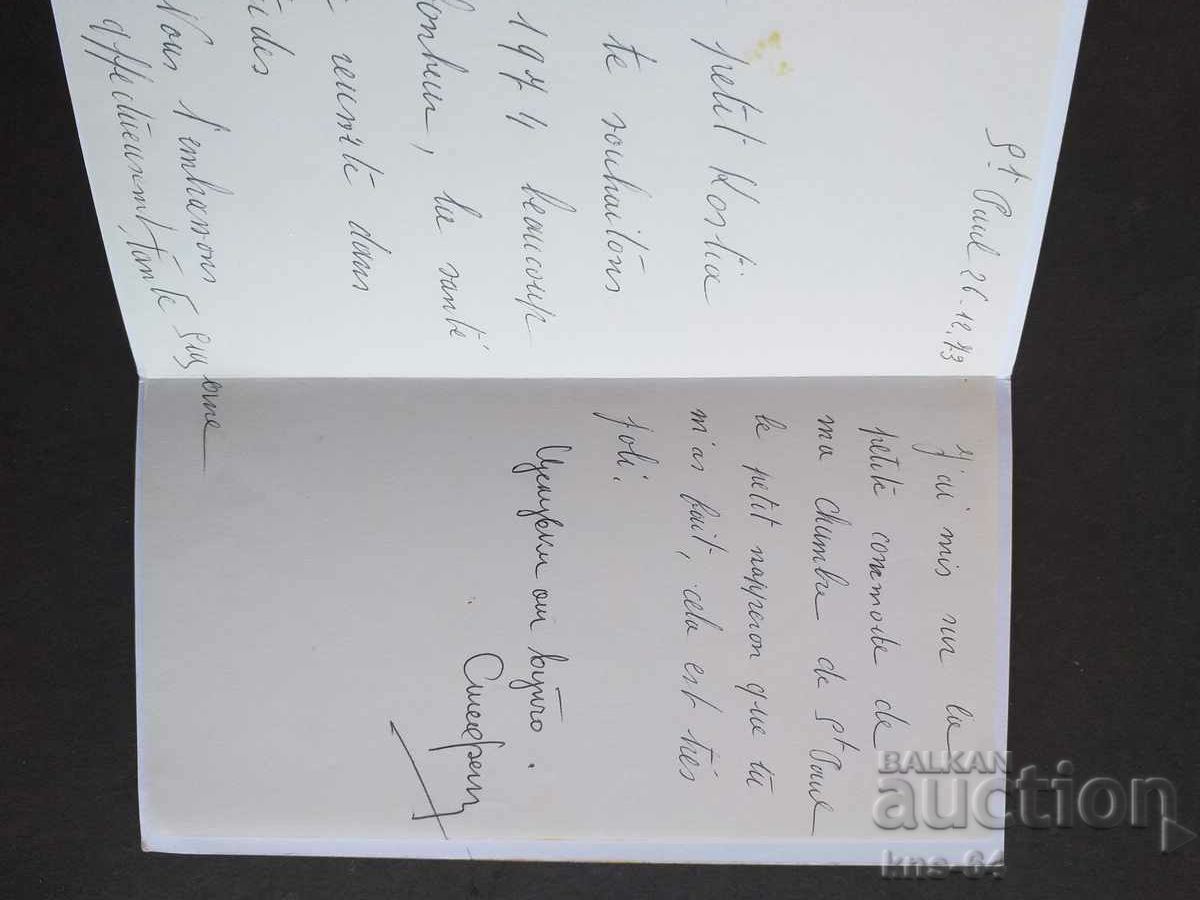 St Paul 26.12.73.
petit Kostia
te souhaitons
1974 beaucoup
onheur, la santé
reussite dans
udes
Nous t'embrassons
affectueusement, tante Suzanne
J'ai mis sur la
petite commode de
ma chambre de St Paul
le petit napperon que tu
m'as fait, cela est très
joli.
Целувки от вуйчо.
Стефан
BALKAN
auction
kns-64